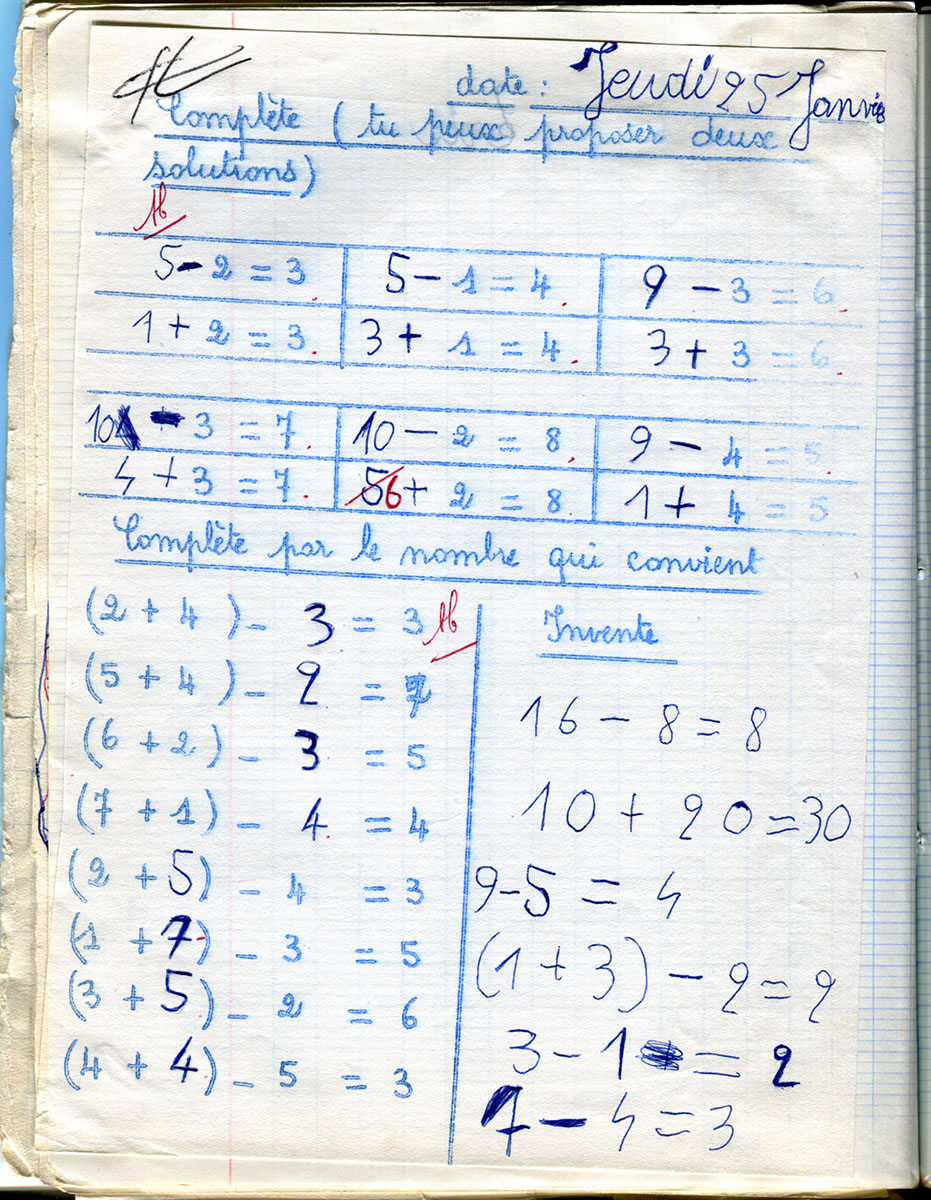 date : Jeudi 25 Janvie
Complète (tu peux proposer deux
solutions)
Tb
5 - 2 = 3 5 - 1 = 4 9 - 3 = 6
1 + 2 = 3 3 + 1 = 4 3 + 3 = 6
10 - 3 = 7 10 - 2 = 8 9 - 4 = 5
4 + 3 = 7 5 6 + 2 = 8 1 + 4 = 5
Complète par le nombre qui convient
(2 + 4) - 3 = 3 Tb
(5 + 4) - 2 = 7
(6 + 2) - 3 = 5
(7 + 1) - 4 = 4
(2 + 5) - 4 = 3
(1 + 7) - 3 = 5
(3 + 5) - 2 = 6
(4 + 4) - 5 = 3
Invente
16 - 8 = 8
10 + 20 = 30
9 - 5 = 4
(1 + 3) - 2 = 2
3 - 1 = 2
7 - 4 = 3